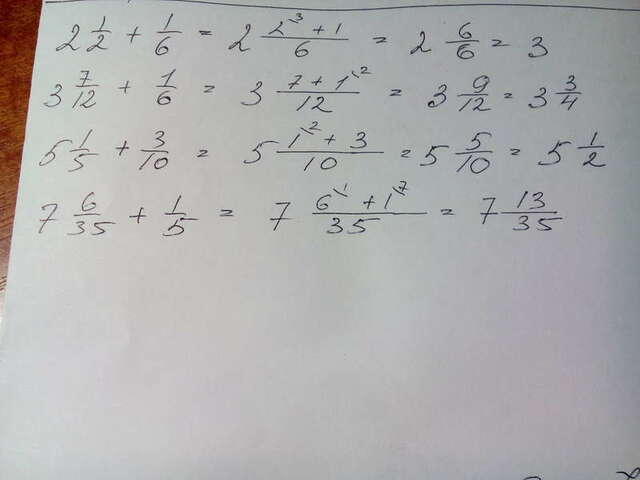 2 1/2 + 1/6 = 2 (2^3 + 1)/6 = 2 6/6 = 3
3 7/12 + 1/6 = 3 (7 + 1^2)/12 = 3 9/12 = 3 3/4
5 1/5 + 3/10 = 5 (1^2 + 3)/10 = 5 5/10 = 5 1/2
7 6/35 + 1/5 = 7 (6^1 + 1^7)/35 = 7 13/35